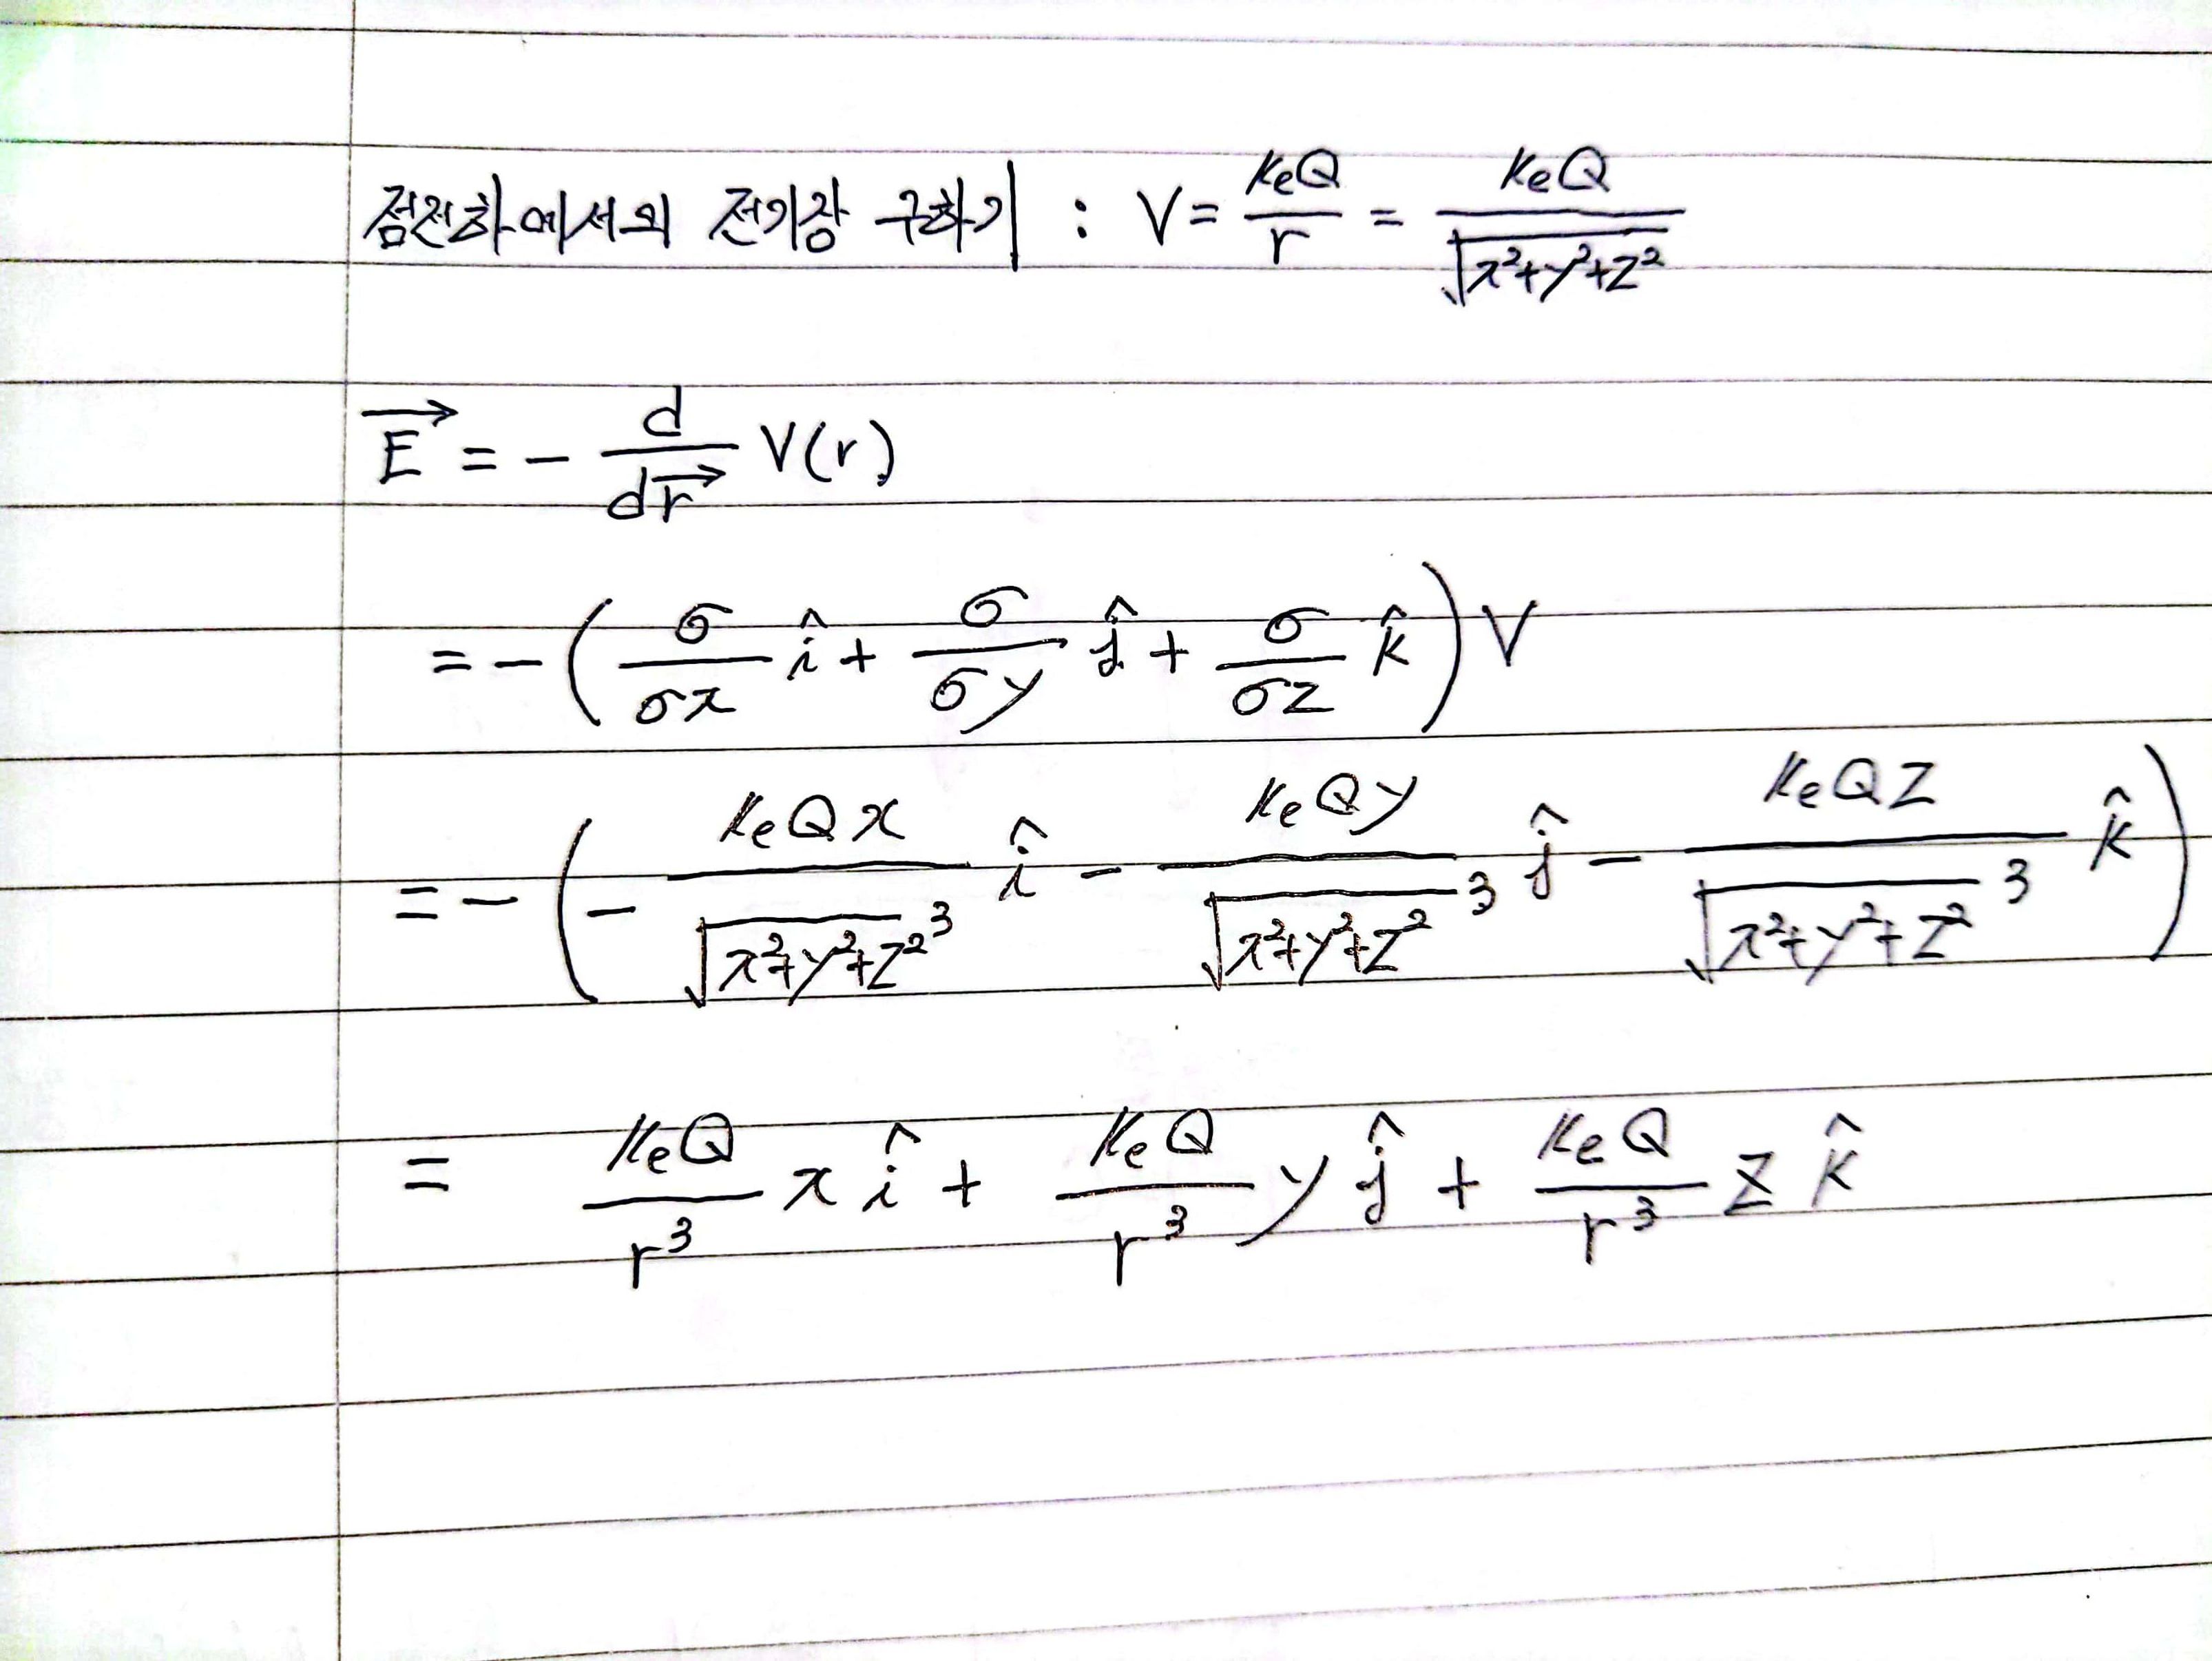 점전하에서의 전기장 구하기 : V = keQ/r = keQ/√(x²+y²+z²)
E⃗ = - d/dr⃗ V(r)
= - (σ/σx î + σ/σy ĵ + σ/σz k̂) V
= - (- keQx/√(x²+y²+z²)³ î - keQy/√(x²+y²+z²)³ ĵ - keQz/√(x²+y²+z²)³ k̂)
= keQ/r³ x î + keQ/r³ y ĵ + keQ/r³ z k̂